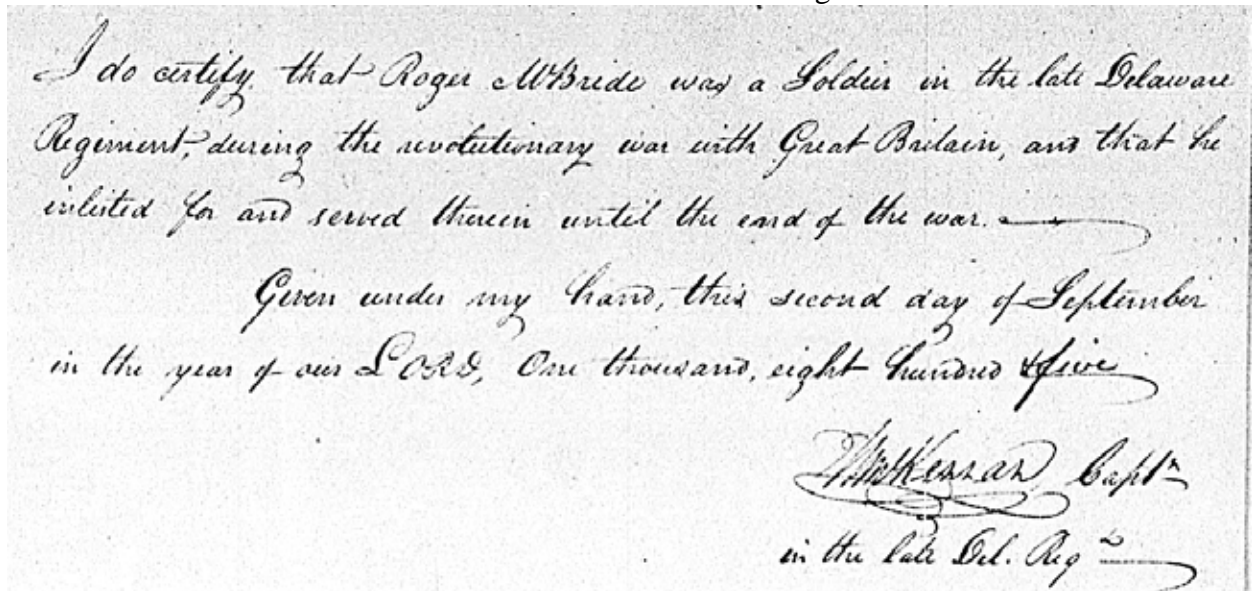 I do certify that Roger McBride was a Soldier in the late Delaware
Regiment, during the revolutionary war with Great Britain, and that he
inlisted for and served therein until the end of the war.
Given under my hand, this second day of September
in the year of our LORD, One thousand, eight hundred & five
McKennan Captn
in the late Del. Regt